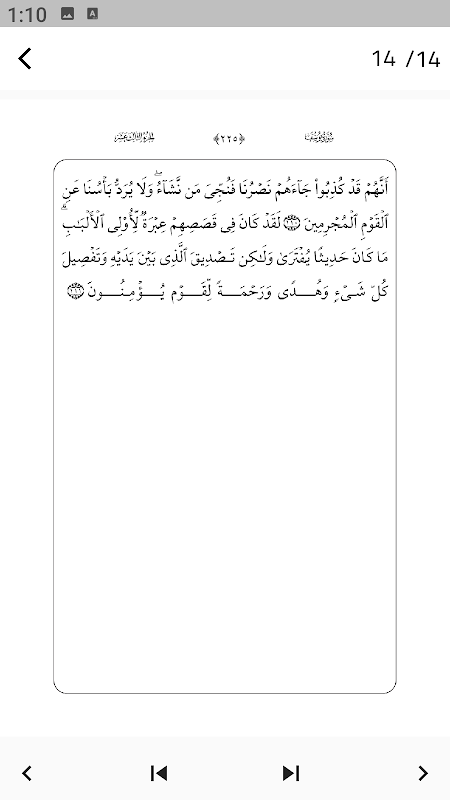 1:10
14 /14
سُورَةُ يُوسُفَ
﴿٢٢٥﴾
الجزء الثالث عشر
أَنَّهُمْ قَدْ كُذِبُواْ جَآءَهُمْ نَصْرُنَا فَنُجِّىَ مَن نَّشَآءُۖ وَلَا يُرَدُّ بَأْسُنَا عَنِ
ٱلْقَوْمِ ٱلْمُجْرِمِينَ ۝١١٠ لَقَدْ كَانَ فِى قَصَصِهِمْ عِبْرَةٌ لِّأُوْلِى ٱلْأَلْبَٰبِۗ
مَا كَانَ حَدِيثًا يُفْتَرَىٰ وَلَٰكِن تَصْدِيقَ ٱلَّذِى بَيْنَ يَدَيْهِ وَتَفْصِيلَ
كُلِّ شَىْءٍ وَهُدًى وَرَحْمَةً لِّقَوْمٍ يُؤْمِنُونَ ۝١١١